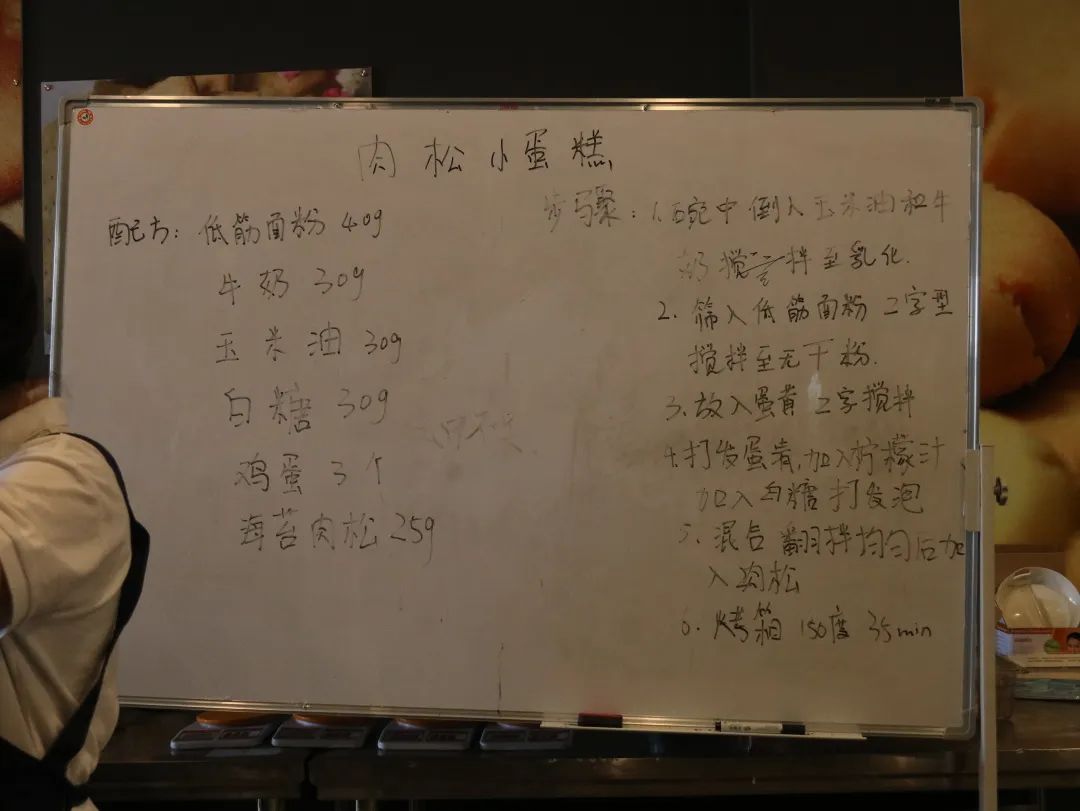 肉松小蛋糕
配方: 低筋面粉 40g
牛奶 30g
玉米油 30g
白糖 30g
鸡蛋 3个
海苔肉松 25g
步骤: 1.碗中倒入玉米油和牛
奶搅拌至乳化.
2. 筛入低筋面粉 Z字型
搅拌至无干粉.
3. 放入蛋黄 Z字搅拌
4. 打发蛋清,加入柠檬汁
加入白糖打发泡
5. 混合 翻拌均匀后加
入肉松
6. 烤箱 150度 35min